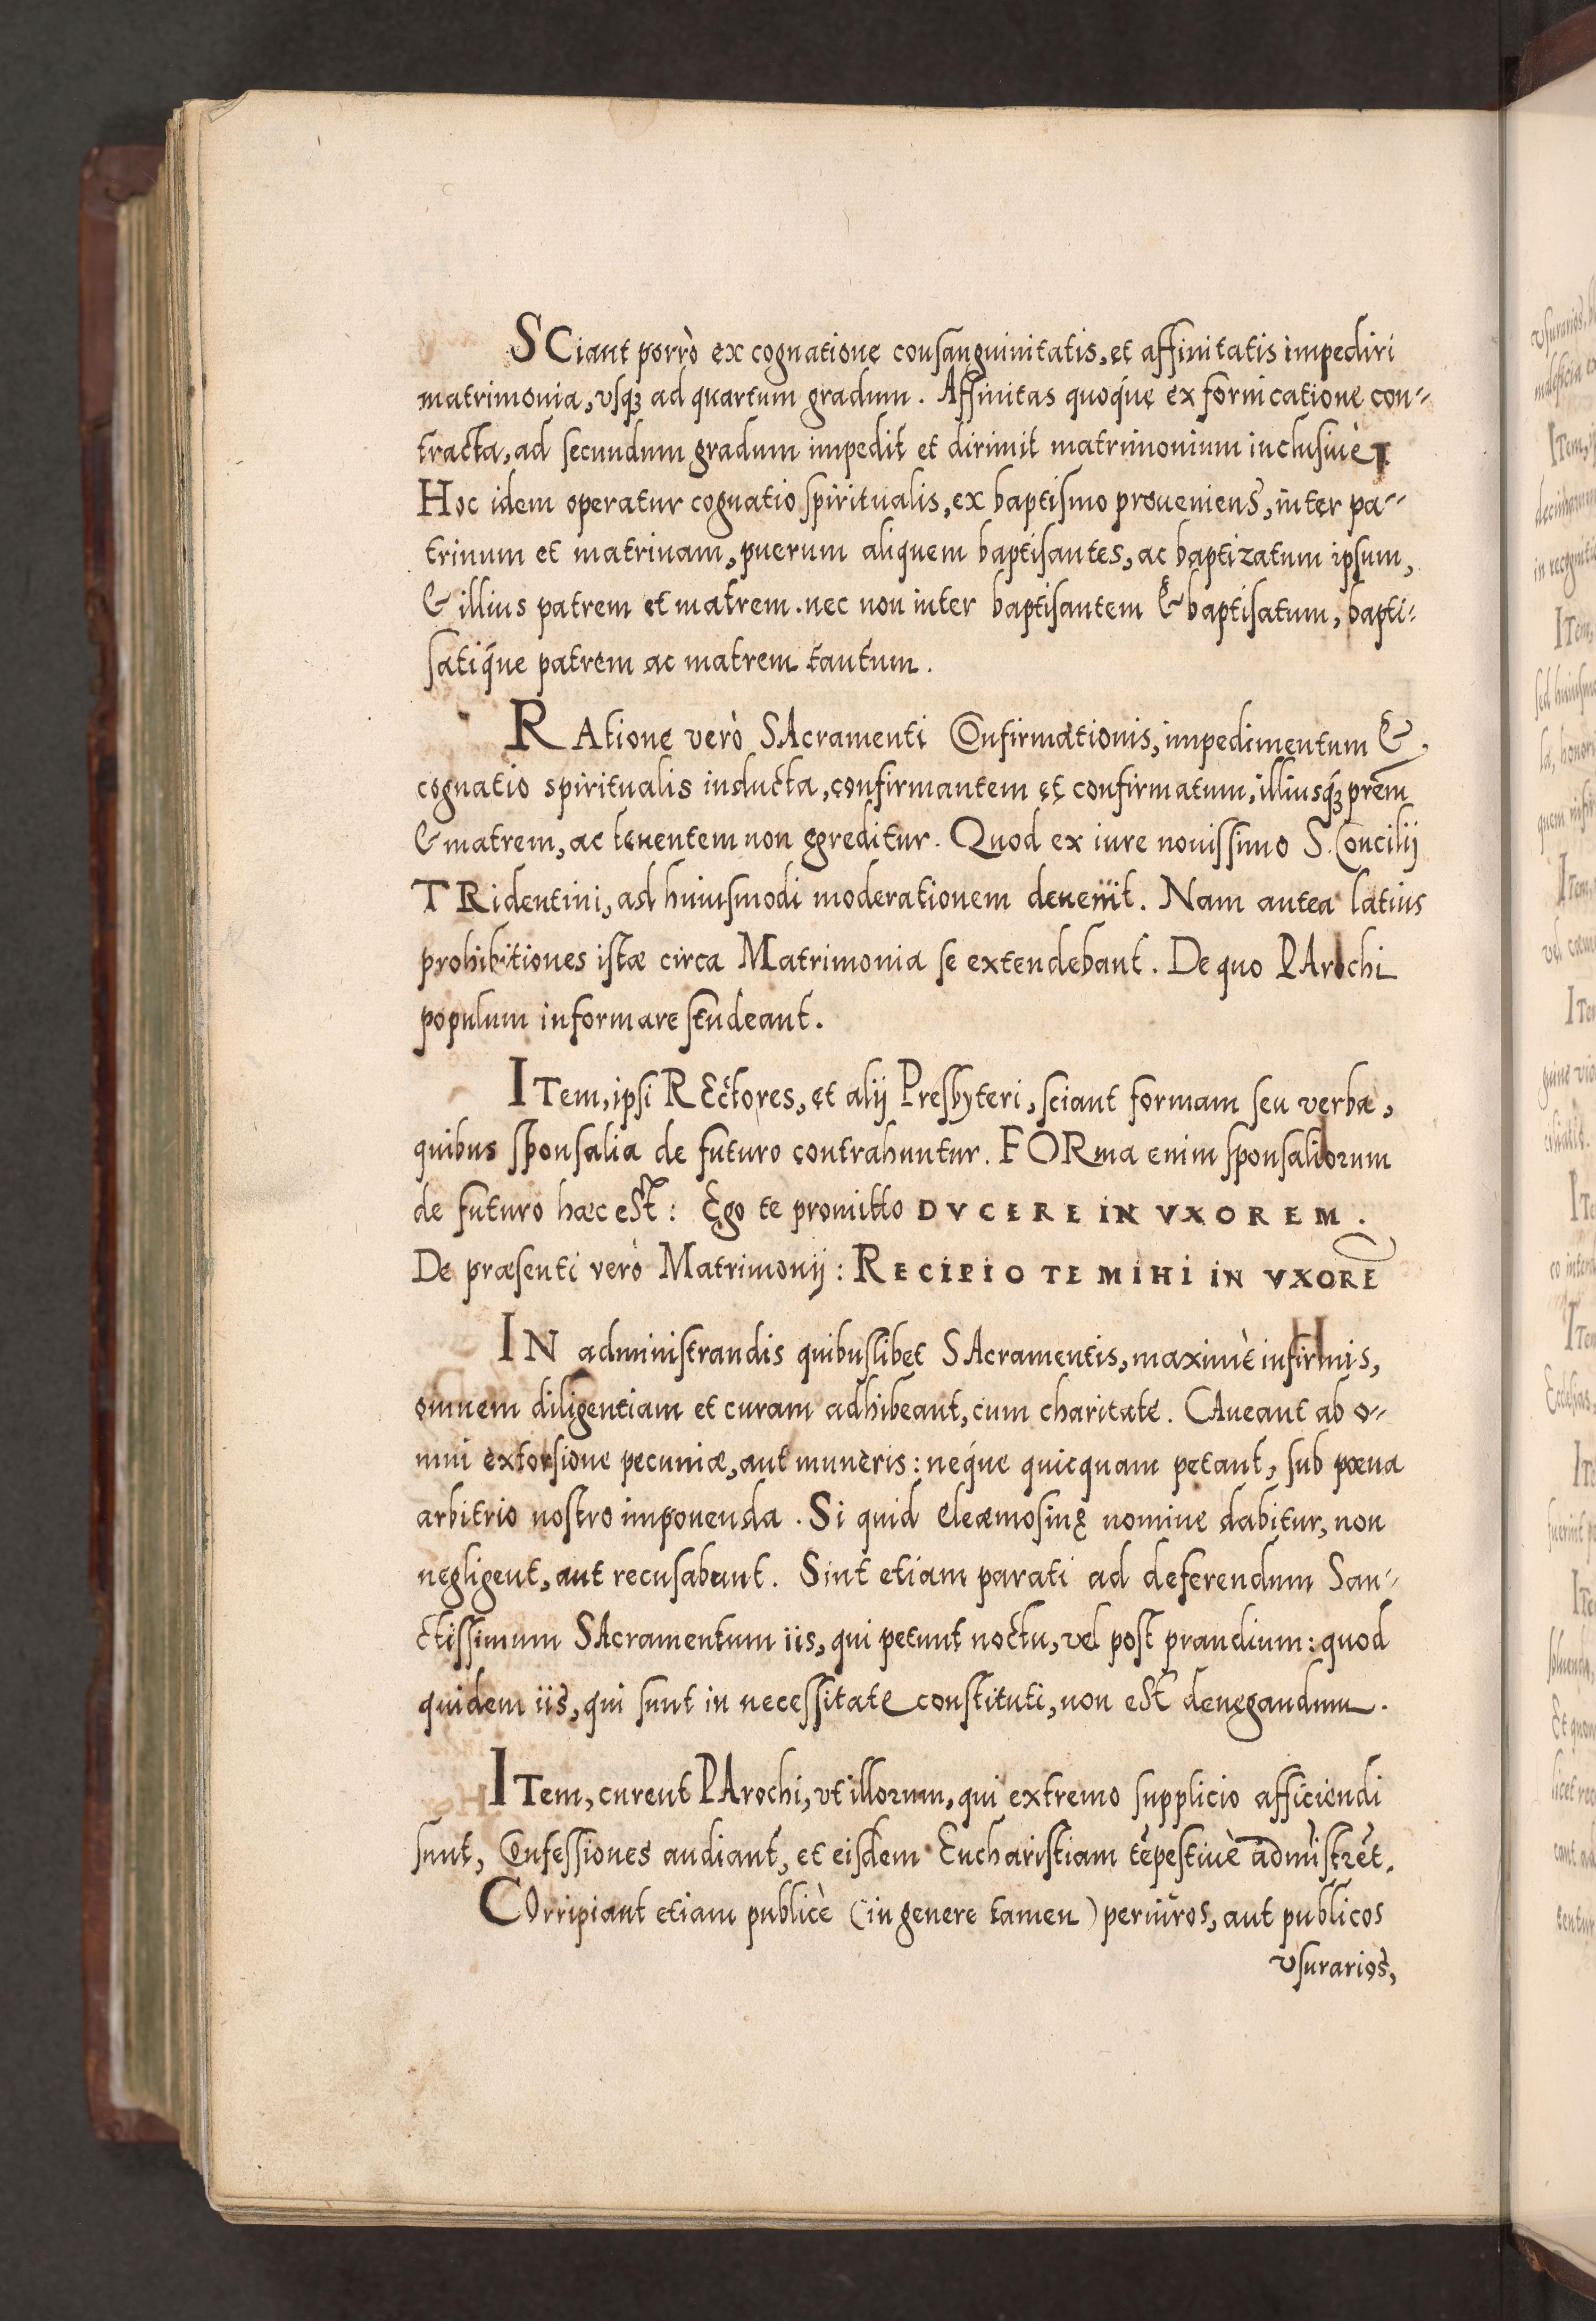 SCiant porrò ex cognatione consanguinitatis, et affinitatis impediri
matrimonia, vsq₃ ad quartum gradum. Affinitas quoq́ue ex fornicatione con-
tracta, ad secundum gradum impedit et dirimit matrimonium inclusiuè.
Hoc idem operatur cognatio spiritualis, ex baptismo proueniens, inter pa-
trinum et matrinam, puerum aliquem baptisantes, ac baptizatum ipsum,
& illius patrem et matrem. nec non inter baptisantem & baptisatum, bapti-
satiq́ue patrem ac matrem tantum.
RAtione verò SAcramenti Confirmationis, impedimentum &
cognatio spiritualis inducta, confirmantem et confirmatum, illiusq́₃ prẽm
& matrem, ac tenentem non egreditur. Quod ex iure nouissimo S. Concilij
TRidentini, ad huiusmodi moderationem deuenit. Nam antea latius
prohibitiones istæ circa Matrimonia se extendebant. De quo PArochi
populum informare studeant.
ITem, ipsi REctores, et alij Presbyteri, sciant formam seu verba,
quibus sponsalia de futuro contrahuntur. FORma enim sponsaliorum
de futuro hæc est: Ego te promitto DVCERE IN VXOREM.
De præsenti verò Matrimonij: RECIPIO TE MIHI IN VXORẼ
IN administrandis quibuslibet SAcramentis, maximè infirmis,
omnem diligentiam et curam adhibeant, cum charitate. CAueant ab o-
mni extorsione pecuniæ, aut muneris: neq́ue quicquam petant, sub pœna
arbitrio nostro imponenda. Si quid eleæmosinę nomine dabitur, non
negligent, aut recusabunt. Sint etiam parati ad deferendum San-
ctissimum SAcramentum iis, qui petunt noctu, vel post prandium: quod
quidem iis, qui sunt in necessitate constituti, non est denegandum.
ITem, curent PArochi, vt illorum, qui extremo supplicio afficiendi
sunt, Confessiones audiant, et eisdem Eucharistiam tẽpestiuè adm̃istrẽt.
COrripiant etiam publicè (in genere tamen) periuros, aut publicos
vsurarios,